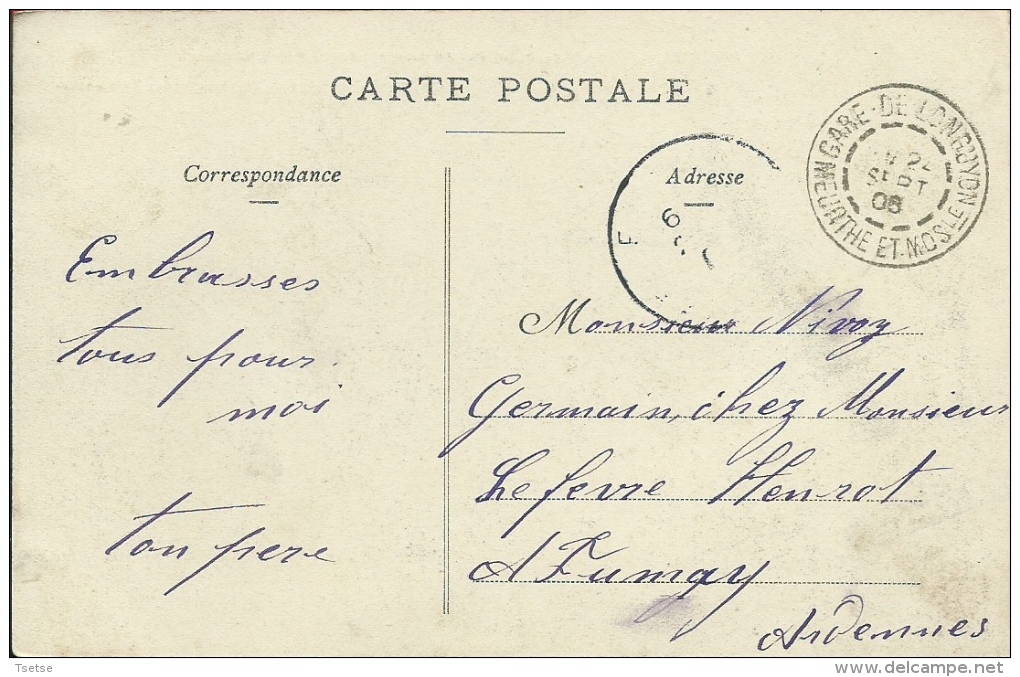 CARTE POSTALE
Correspondance
Adresse
GARE-DE LONGUYON
MEURTHE ET-MOSLE
SEPT
08
F
Embrasses
tous pour
moi
ton pere
Monsieur Nivoy
Germain, chez Monsieur
Lefevre Henrot
A Fumay
Ardennes
Tsetse
delcampe.net